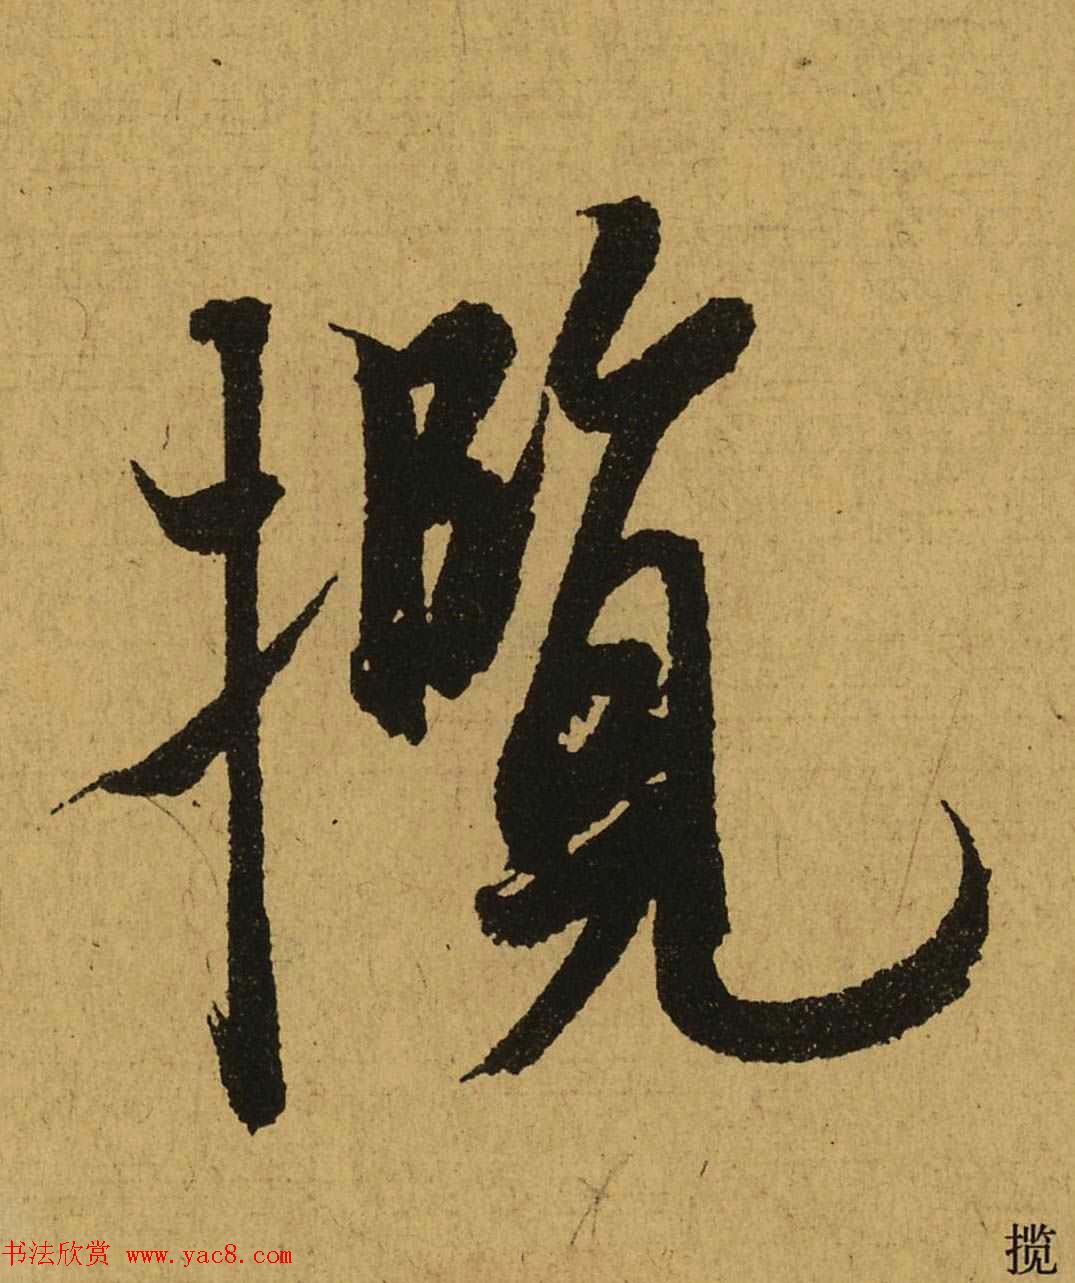 揽
书法欣赏 www.yac8.com
揽